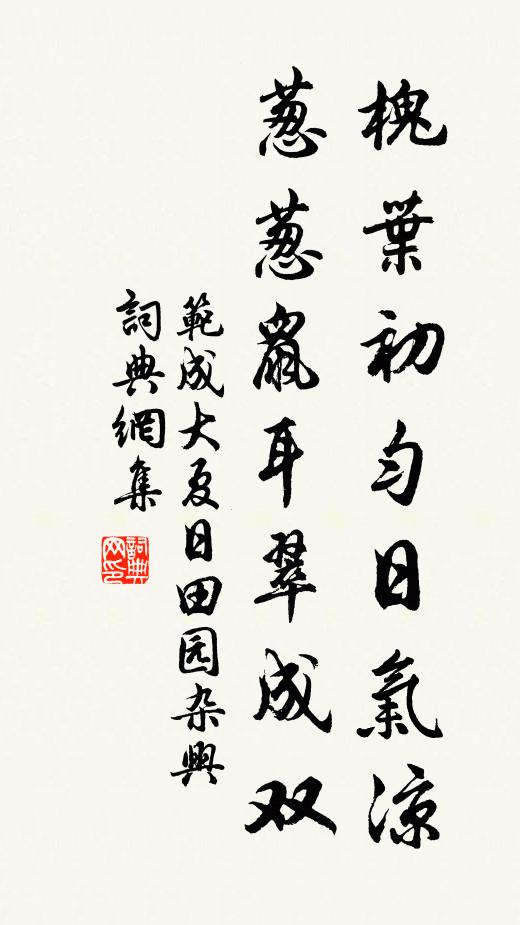 槐葉初匀日氣涼
葱葱鼠耳翠成双
範成大夏日田园杂興
詞典網集
詞典网印